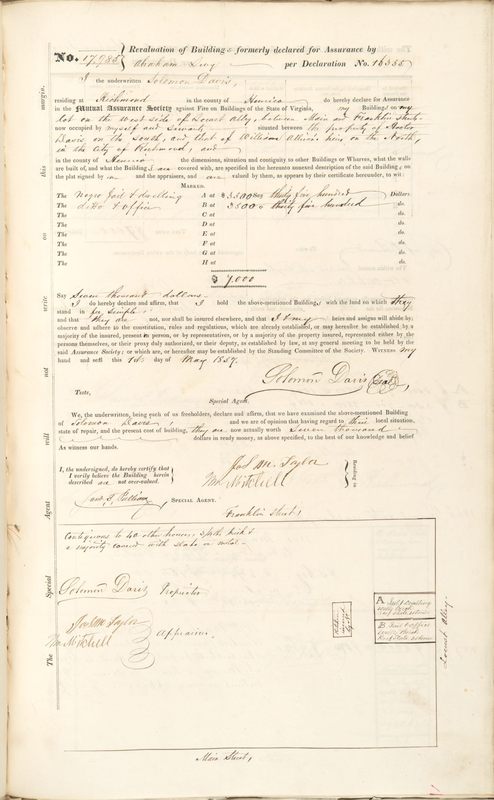 No. 17,985 } Revaluation of Buildings formerly declared for Assurance by
Abraham Levy per Declaration No. 16355
I the underwritten Solomon Davis,
residing at Richmond in the county of Henrico do hereby declare for Assurance
in the Mutual Assurance Society against Fire on Buildings of the State of Virginia, my Buildings on my
lot on the west side of Locust Alley, between Main and Franklin Streets
now occupied by myself and Servants, situated between the property of Hector
Davis on the South, and that of William Allen's heirs on the North,
in the City of Richmond, and
in the county of Henrico the dimensions, situation and contiguity to other Buildings or Wharves, what the walls
are built of, and what the Buildings are covered with, are specified in the hereunto annexed description of the said Buildings on
the plat signed by me and the appraisers, and are valued by them, as appears by their certificate hereunder, to wit:
MARKED.
The Negro Jail & dwelling A at $3500 say thirty five hundred Dollars
The ditto & office B at 3500 " thirty five hundred do.
The C at do.
The D at do.
The E at do.
The F at do.
The G at do.
The H at do.
$ 7,000
Say Seven thousand dollars
I do hereby declare and affirm, that I hold the above-mentioned Buildings with the land on which they
stand in fee simple
and that they are not, nor shall be insured elsewhere, and that I & my heirs and assigns will abide by,
observe and adhere to the constitution, rules and regulations, which are already established, or may hereafter be established by a
majority of the insured, present in person, or by representatives, or by a majority of the property insured, represented either by the
persons themselves, or their proxy duly authorized, or their deputy, as established by law, at any general meeting to be held by the
said Assurance Society; or which are, or hereafter may be established by the Standing Committee of the Society. WITNESS my
hand and seal this day of May 1857.
Solomon Davis Seal
Teste,
Special Agent.
We, the underwritten, being each of us freeholders, declare and affirm, that we have examined the above-mentioned Building
of Solomon Davis, and we are of opinion that having regard to their local situation,
state of repair, and the present cost of building, they are now actually worth Seven thousand
dollars in ready money, as above specified, to the best of our knowledge and belief
As witness our hands.
I, the undersigned, do hereby certify that
I verily believe the Building herein
described are not over-valued.
Jos. M. Taylor
Wm. Mitchell
Residing in
SPECIAL AGENT.
Franklin Street,
Contiguous to 40 other houses, brick &
a majority covered with slate or metal
Solomon Davis Proprietor
Jos. M. Taylor
Wm. Mitchell
Appraisers
A Jail & dwelling
B Jail & office
Locust Alley
Main Street,
The Special Agent will not write on this margin.